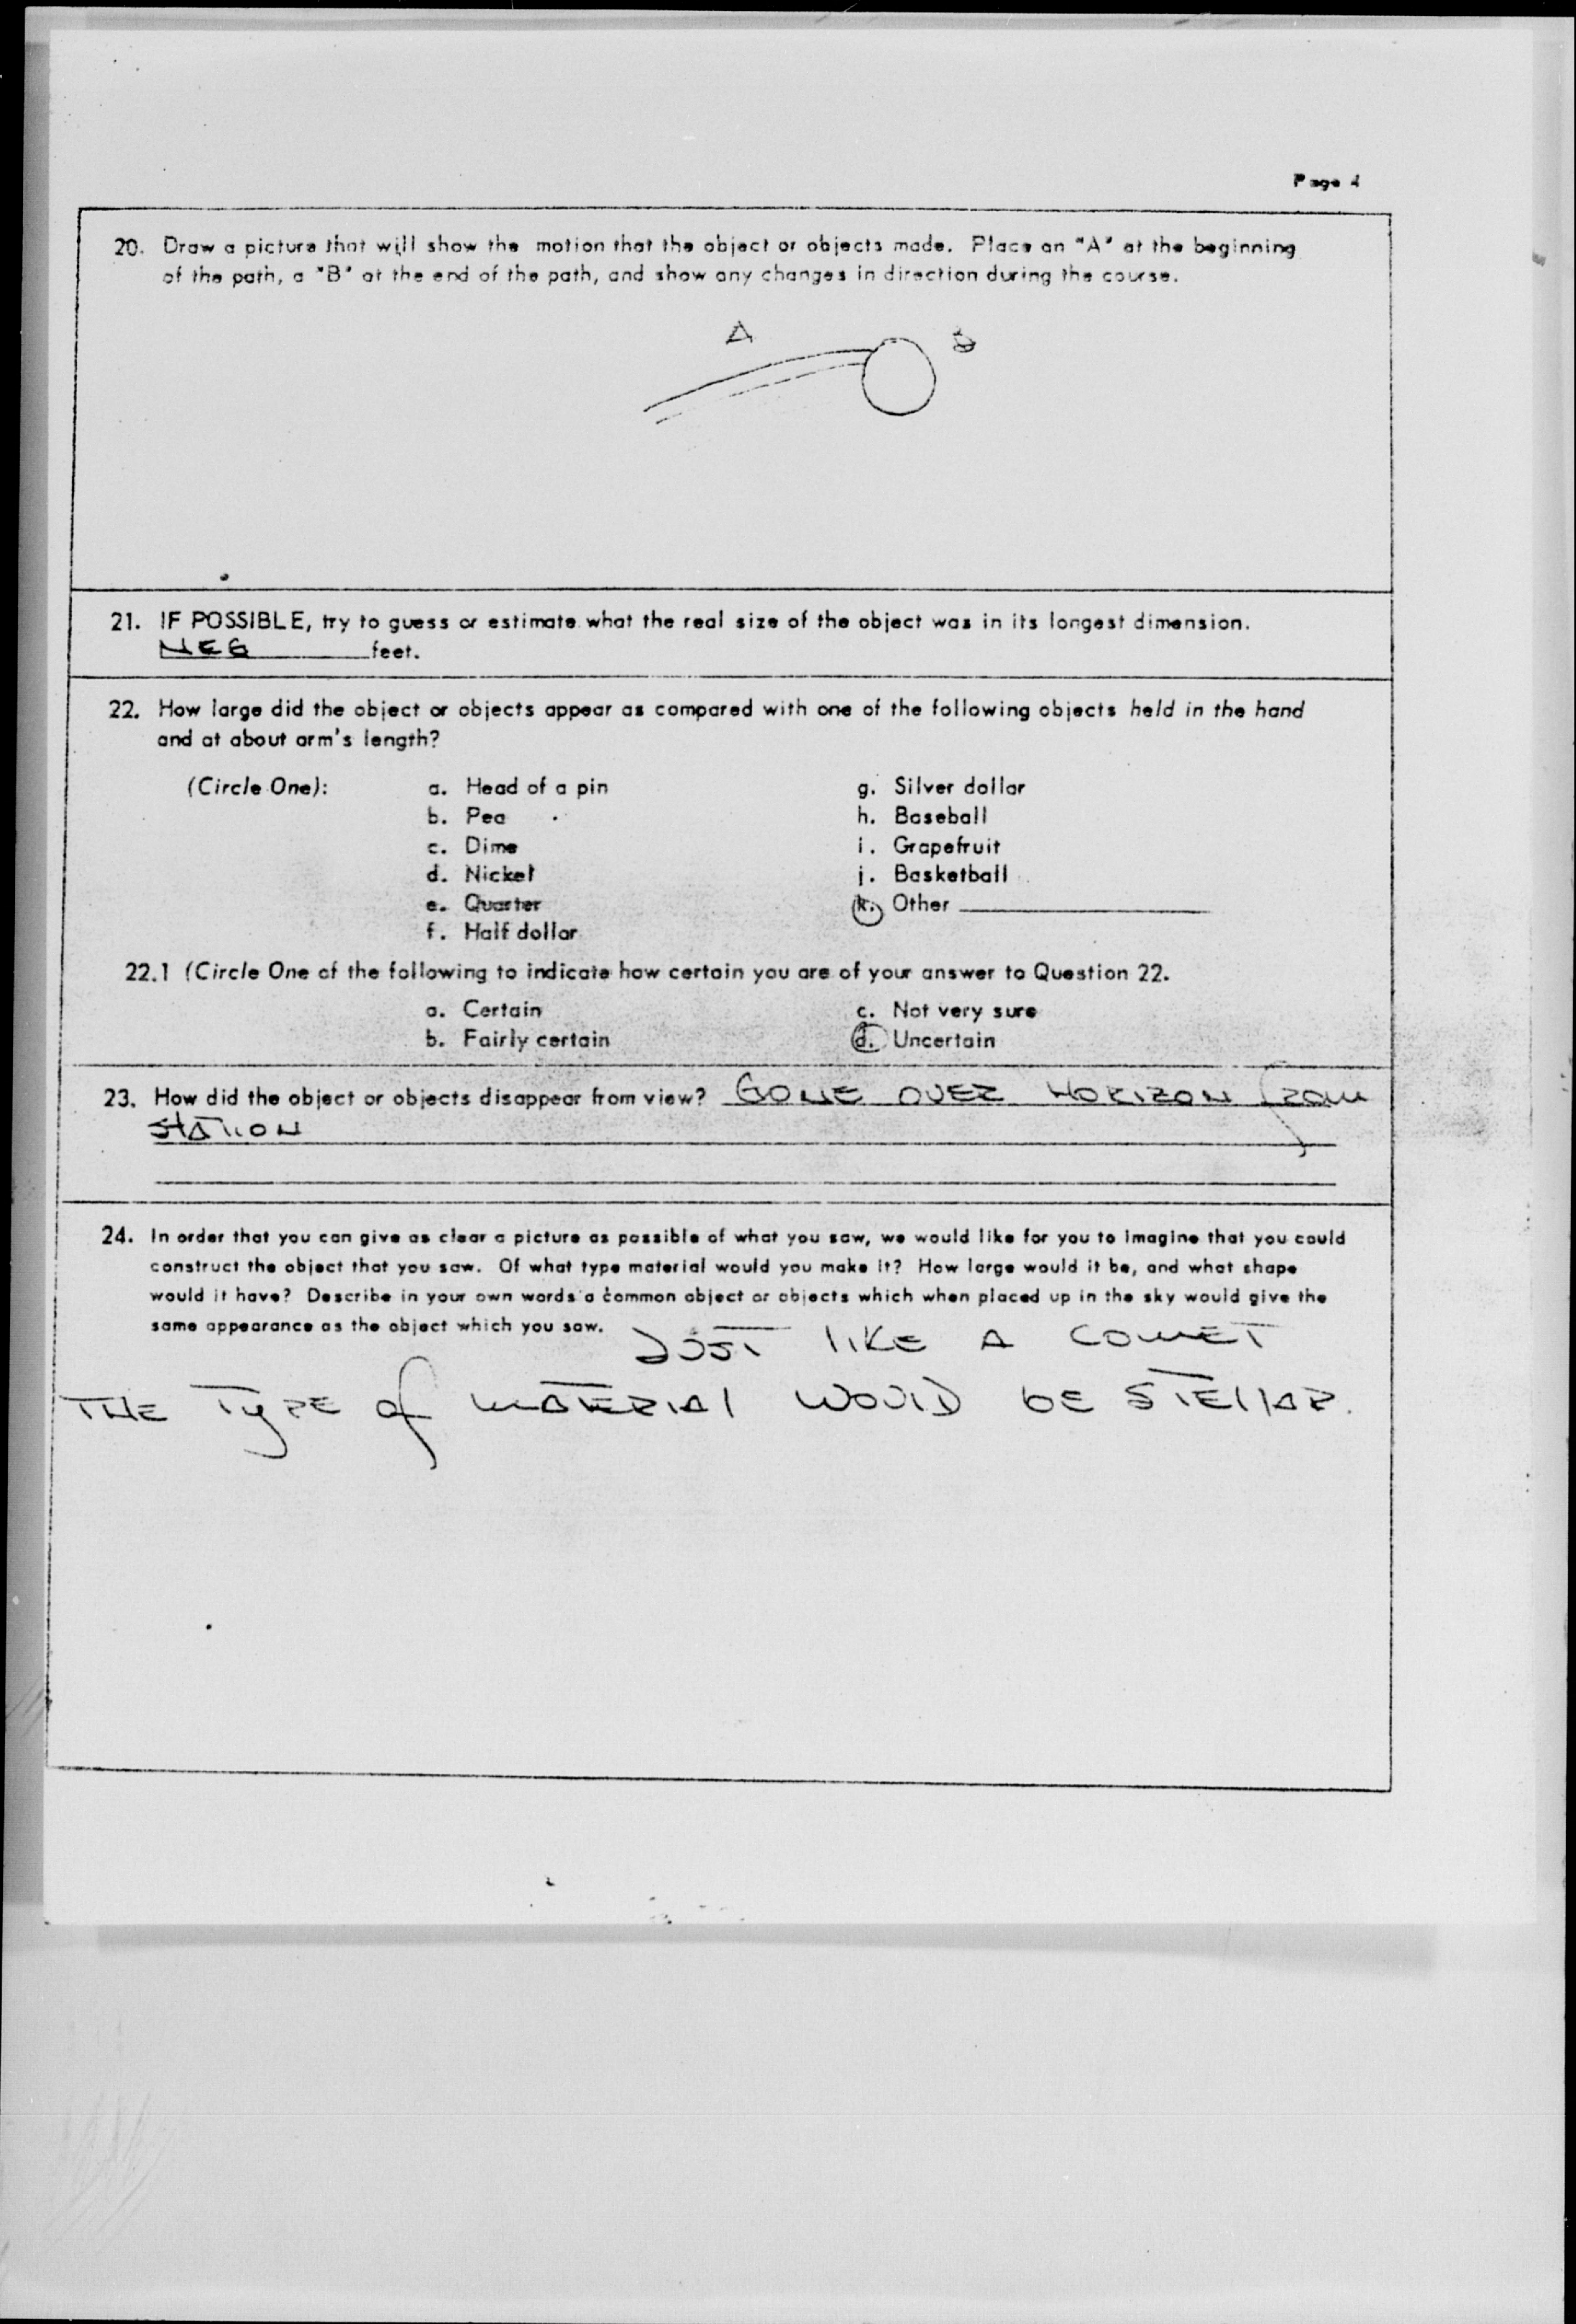 Page 4
20. Draw a picture that will show the motion that the object or objects made. Place an "A" at the beginning
of the path, a "B" at the end of the path, and show any changes in direction during the course.
A B
21. IF POSSIBLE, try to guess or estimate what the real size of the object was in its longest dimension.
NEG feet.
22. How large did the object or objects appear as compared with one of the following objects held in the hand
and at about arm's length?
(Circle One): a. Head of a pin g. Silver dollar
b. Pea h. Baseball
c. Dime i. Grapefruit
d. Nickel j. Basketball
e. Quarter k. Other
f. Half dollar
22.1 (Circle One of the following to indicate how certain you are of your answer to Question 22.
a. Certain c. Not very sure
b. Fairly certain d. Uncertain
23. How did the object or objects disappear from view? GONE OVER HORIZON from
STATION
24. In order that you can give as clear a picture as possible of what you saw, we would like for you to imagine that you could
construct the object that you saw. Of what type material would you make it? How large would it be, and what shape
would it have? Describe in your own words a common object or objects which when placed up in the sky would give the
same appearance as the object which you saw. JUST LIKE A COMET
THE TYPE of MATERIAL WOULD BE STELLAR.